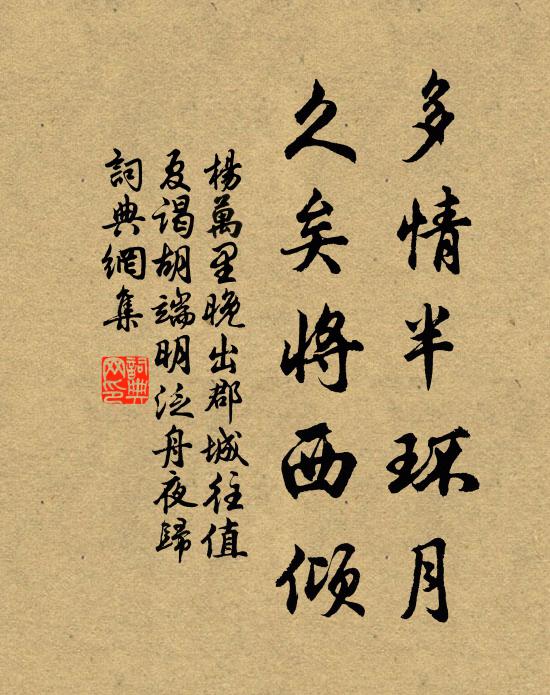 多情半环月
久矣将西倾
楊萬里晚出郡城往值
夏谒胡端明泛舟夜歸
詞典網集
詞典网印